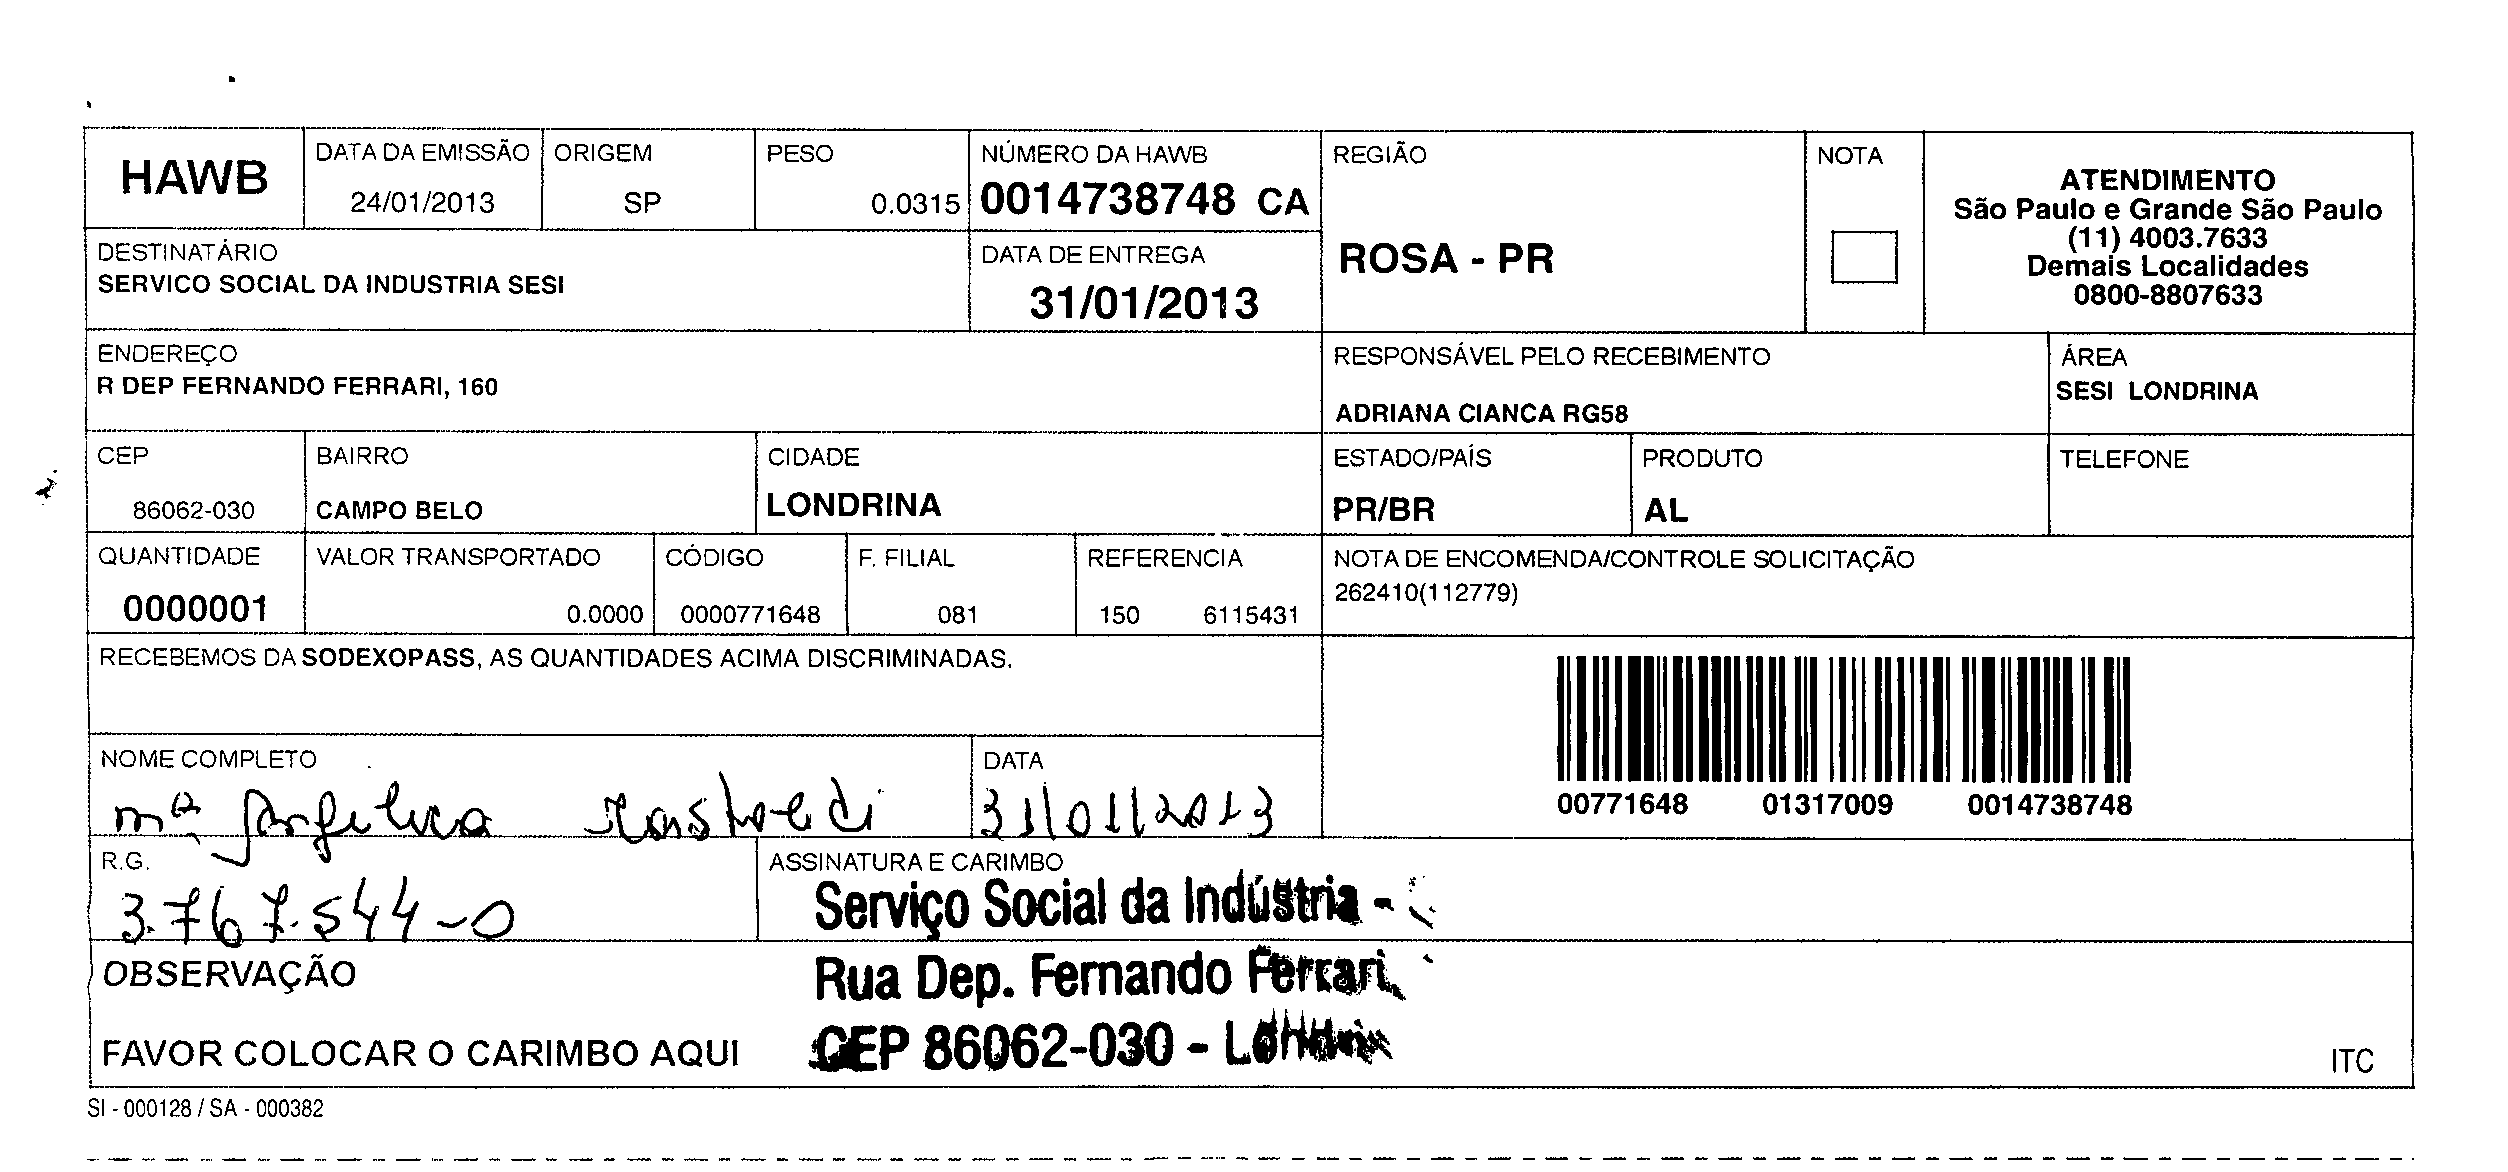 HAWB
DATA DA EMISSÃO
24/01/2013
ORIGEM
SP
PESO
0.0315
NÚMERO DA HAWB
0014738748 CA
REGIÃO
ROSA - PR
NOTA
ATENDIMENTO
São Paulo e Grande São Paulo
(11) 4003.7633
Demais Localidades
0800-8807633
DESTINATÁRIO
SERVICO SOCIAL DA INDUSTRIA SESI
DATA DE ENTREGA
31/01/2013
ENDEREÇO
R DEP FERNANDO FERRARI, 160
RESPONSÁVEL PELO RECEBIMENTO
ADRIANA CIANCA RG58
ÁREA
SESI LONDRINA
CEP
86062-030
BAIRRO
CAMPO BELO
CIDADE
LONDRINA
ESTADO/PAÍS
PR/BR
PRODUTO
AL
TELEFONE
QUANTIDADE
0000001
VALOR TRANSPORTADO
0.0000
CÓDIGO
0000771648
F. FILIAL
081
REFERENCIA
150 6115431
NOTA DE ENCOMENDA/CONTROLE SOLICITAÇÃO
262410(112779)
RECEBEMOS DA SODEXOPASS, AS QUANTIDADES ACIMA DISCRIMINADAS.
00771648 01317009 0014738748
NOME COMPLETO
Mª Angelica
DATA
31/01/2013
R.G.
3.767.544-0
ASSINATURA E CARIMBO
Serviço Social da Indústria -
Rua Dep. Fernando Ferrari,
CEP 86062-030 - Londrin
OBSERVAÇÃO
FAVOR COLOCAR O CARIMBO AQUI
ITC
SI - 000128 / SA - 000382